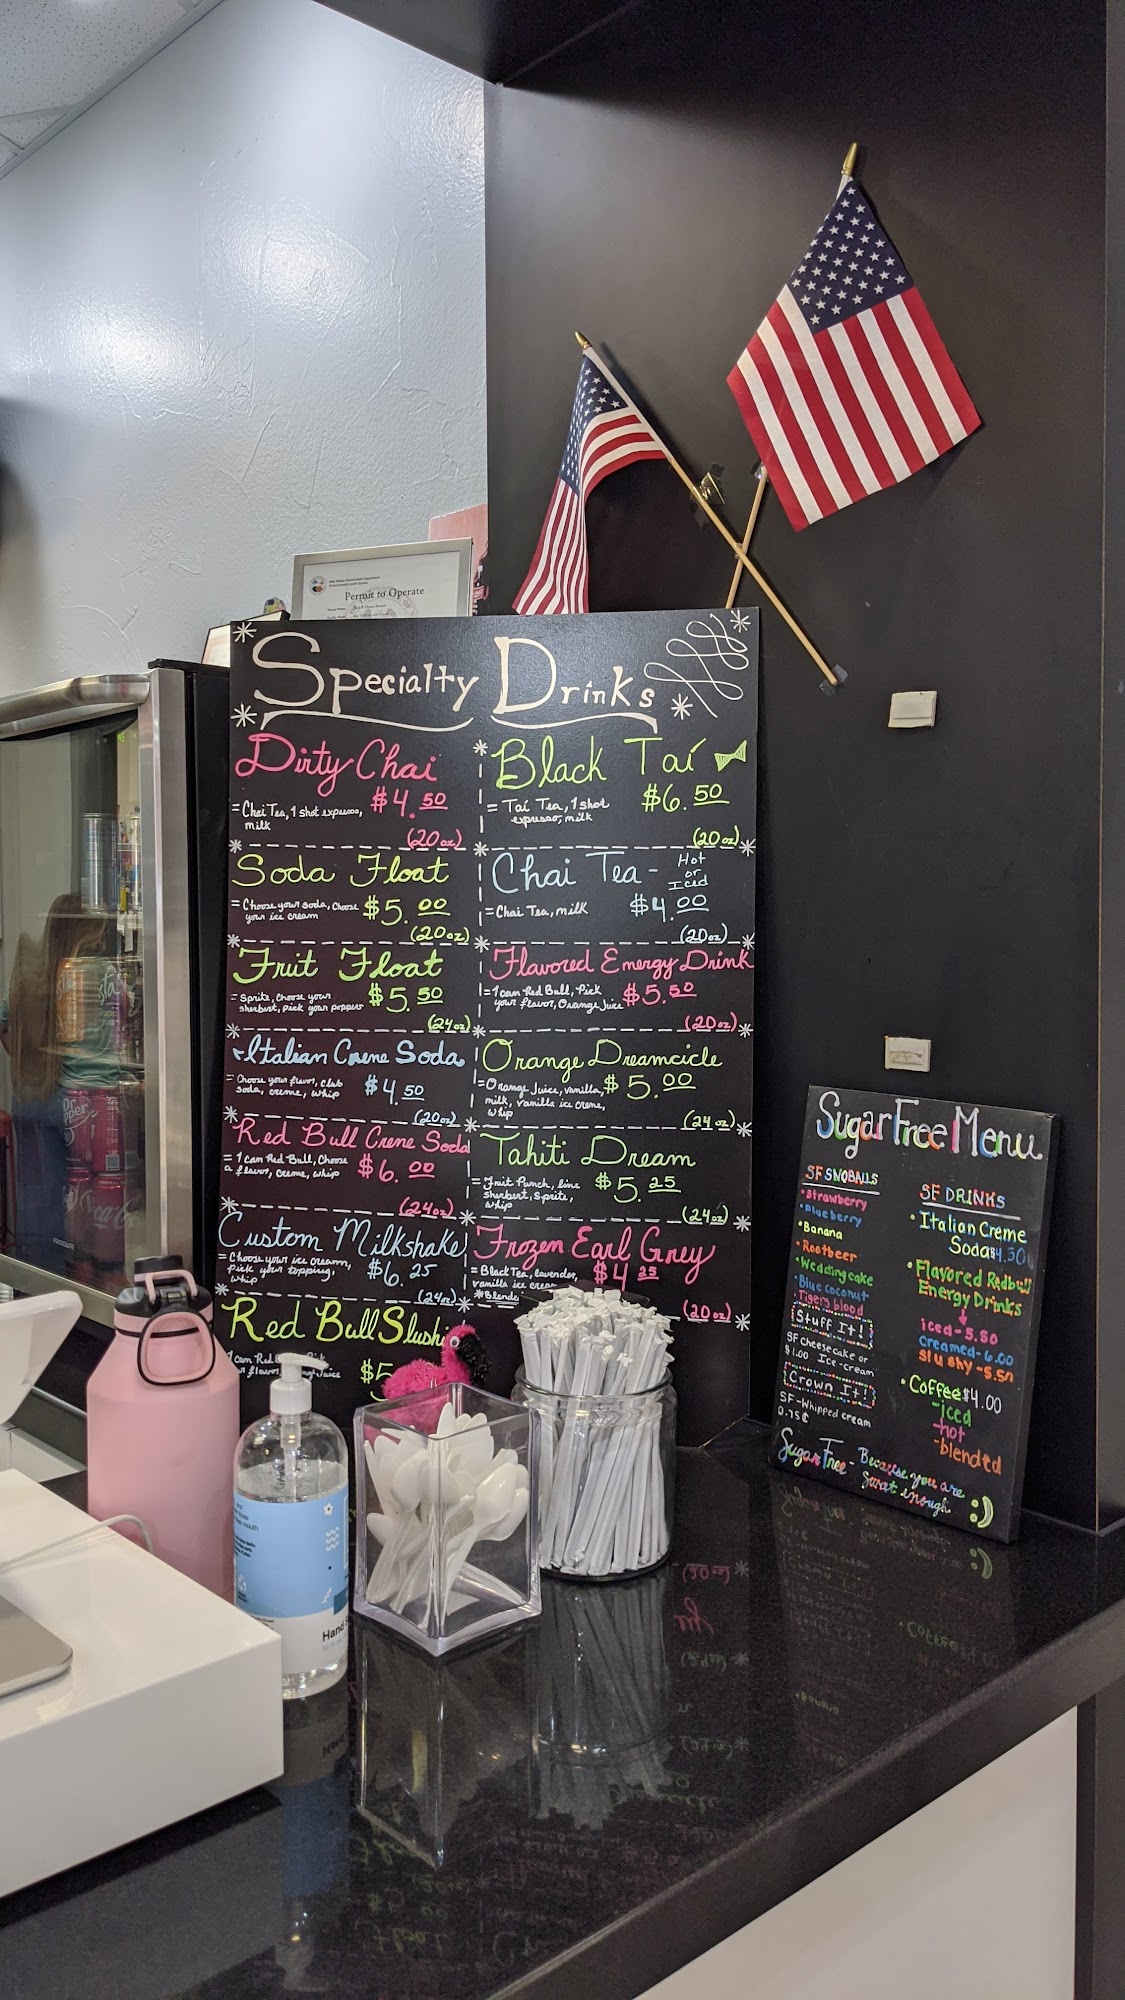 Permit to Operate
Specialty Drinks
Dirty Chai
$4.50
=Chai Tea, 1 shot expresso,
milk
(20oz)
Soda Float
=Choose your soda, Choose
your ice cream
$5.00
(20oz)
Fruit Float
=Sprite, Choose your
sherbert, pick your poppers
$5.50
(24oz)
Italian Creme Soda
=Choose your flavor, club
soda, creme, whip
$4.50
(20oz)
Red Bull Creme Soda
=1 can Red Bull, Choose
a flavor, creme, whip
$6.00
(24oz)
Custom Milkshake
=Choose your ice cream,
pick your topping,
whip
$6.25
(24oz)
Red Bull Slush
1 can Red
$5
Black Taí
$6.50
=Taí Tea, 1 shot
expresso, milk
(20oz)
Chai Tea-
Hot
or
Iced
=Chai Tea, milk
$4.00
(20oz)
Flavored Energy Drink
=1 can Red Bull, Pick
your flavor, Orange Juice
$5.50
(20oz)
Orange Dreamcicle
=Orange Juice, vanilla,
milk, vanilla ice creme,
whip
$5.00
(24oz)
Tahiti Dream
=Fruit Punch, lime
sherbert, Sprite,
whip
$5.25
(24oz)
Frozen Earl Grey
=Black Tea, lavender,
vanilla ice cream
*Blended
$4.25
(20oz)
Sugar Free Menu
SF SNOBALLS
•Strawberry
•Blueberry
•Banana
•Rootbeer
•Wedding cake
•Blue coconut
•Tigers blood
Stuff It!
SF cheesecake or
$1.00 Ice-cream
Crown It!
SF-Whipped cream
0.75¢
SF DRINKS
•Italian Creme
Soda $4.50
•Flavored Redbull
Energy Drinks
iced-5.50
creamed-6.00
slushy-5.50
•Coffee $4.00
-iced
-hot
-blended
Sugar Free - Because you are
sweet enough :)
Dr
Pepper
Hand